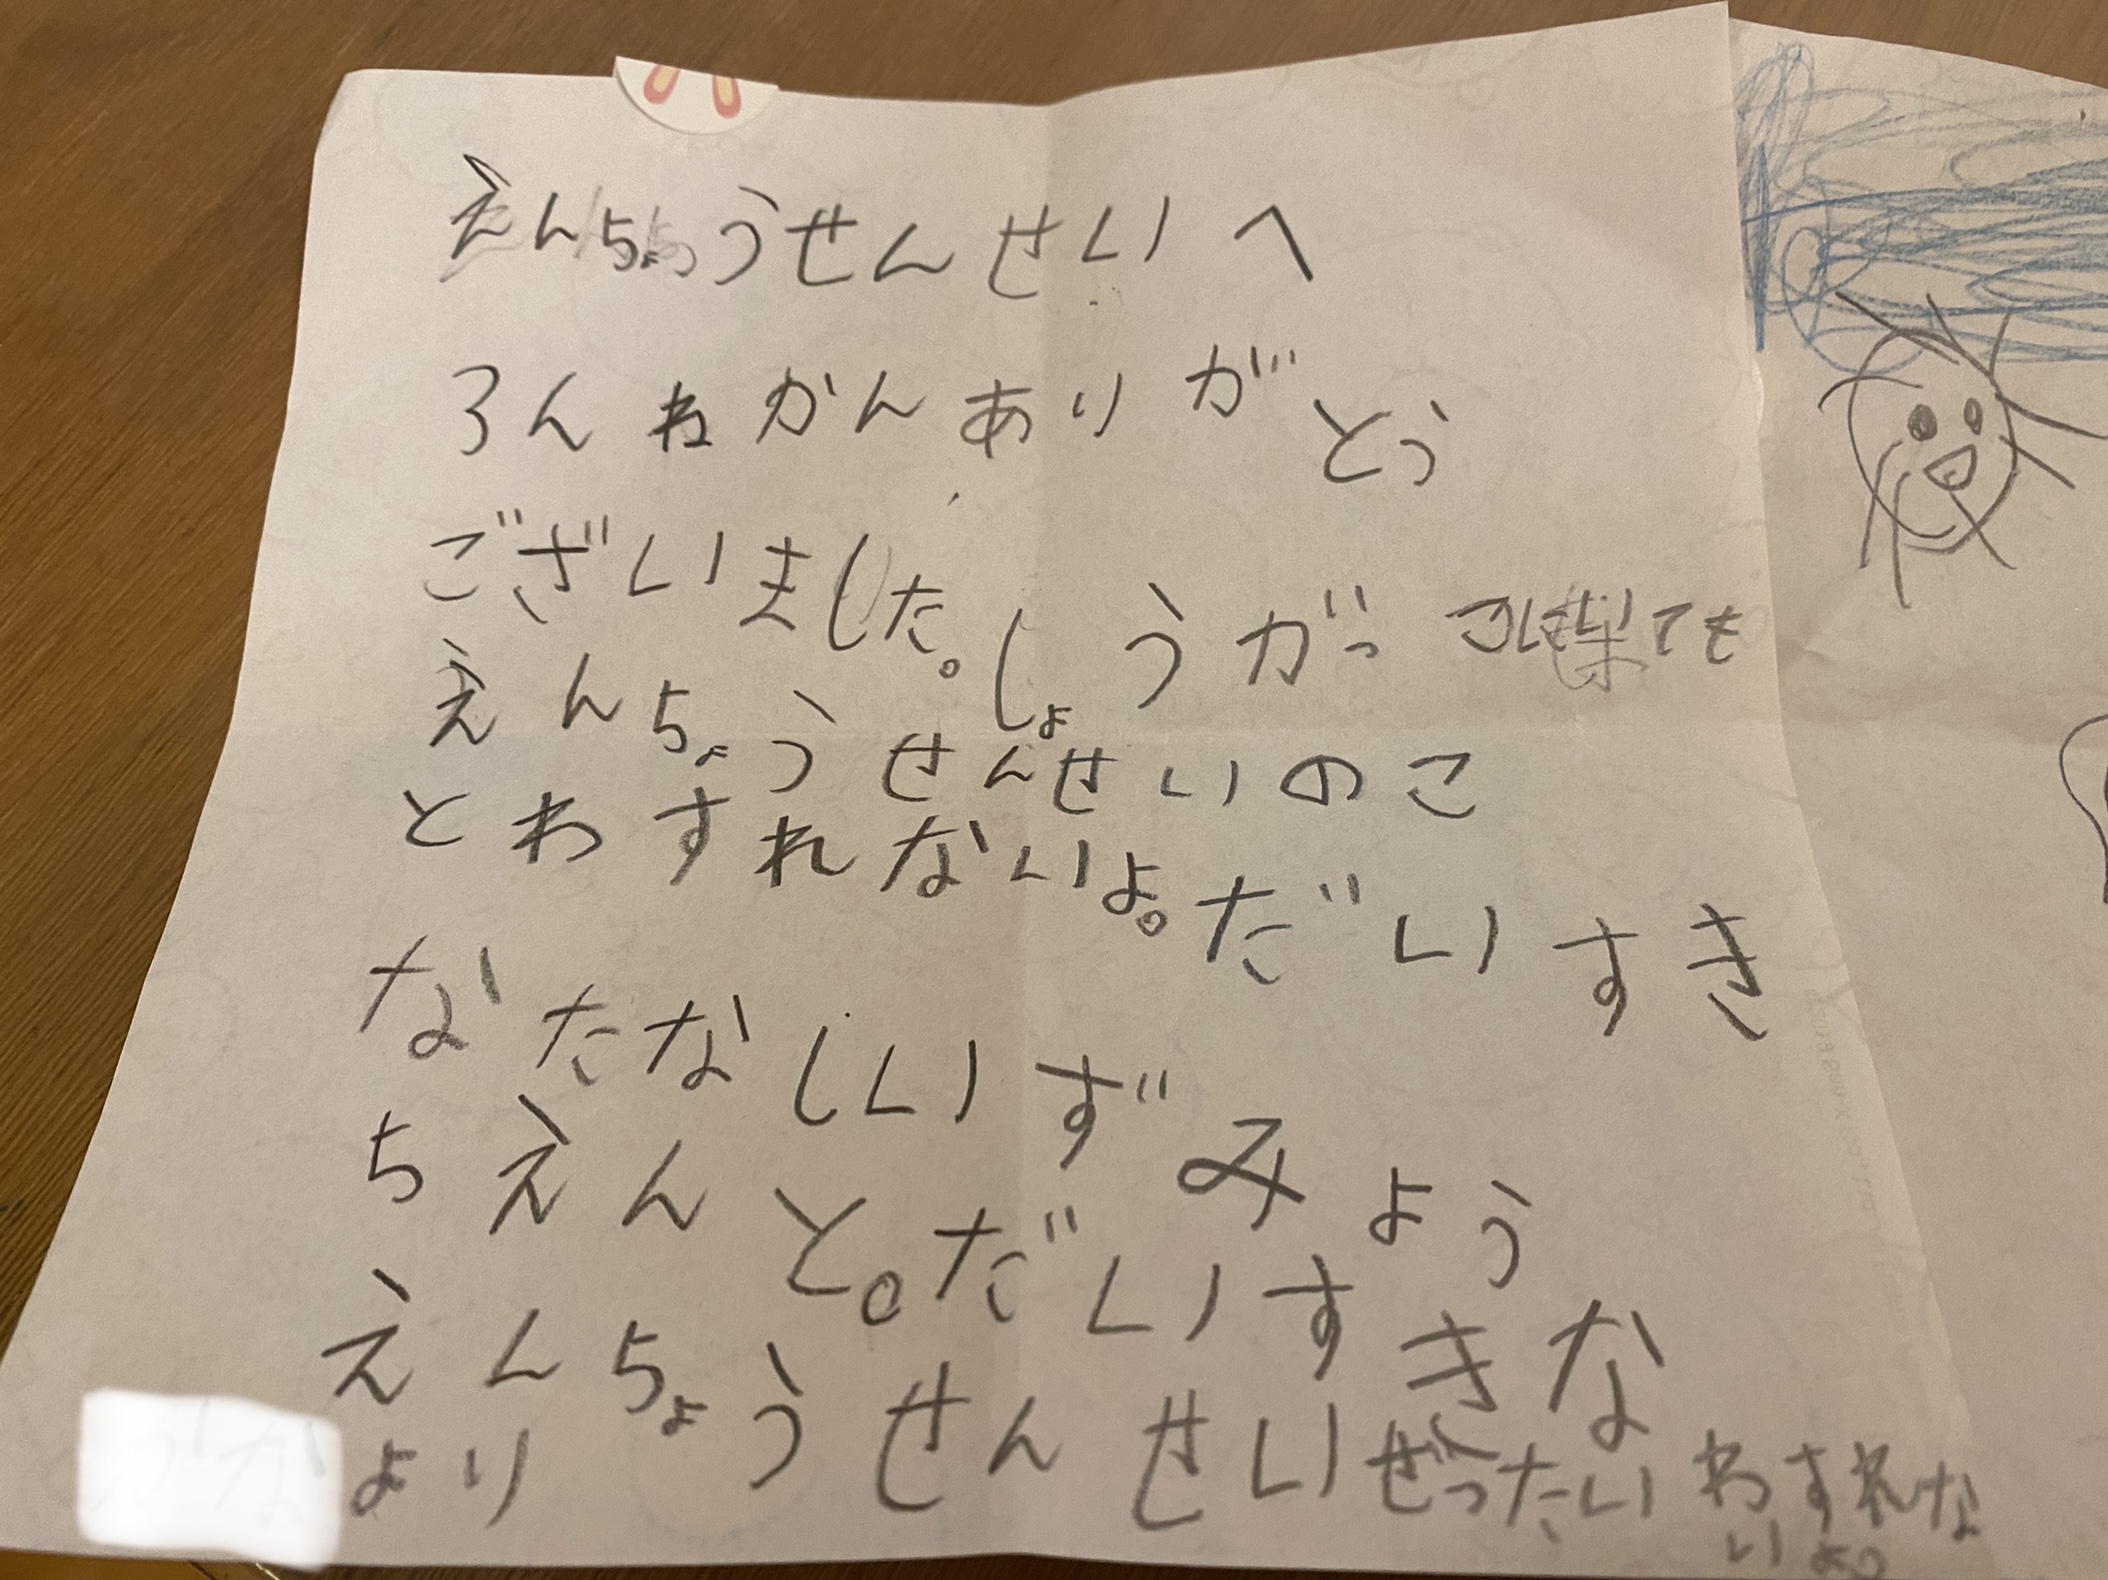 えんちょうせんせいへ
3んねかんありがとう
ございました。しょうがっこ
ても
えんちょうせんせいのこ
とわすれないよ。だいすき
なたなしいずみよう
ちえんと。だいすきな
えんちょうせんせいぜったいわすれな
いよ。
より